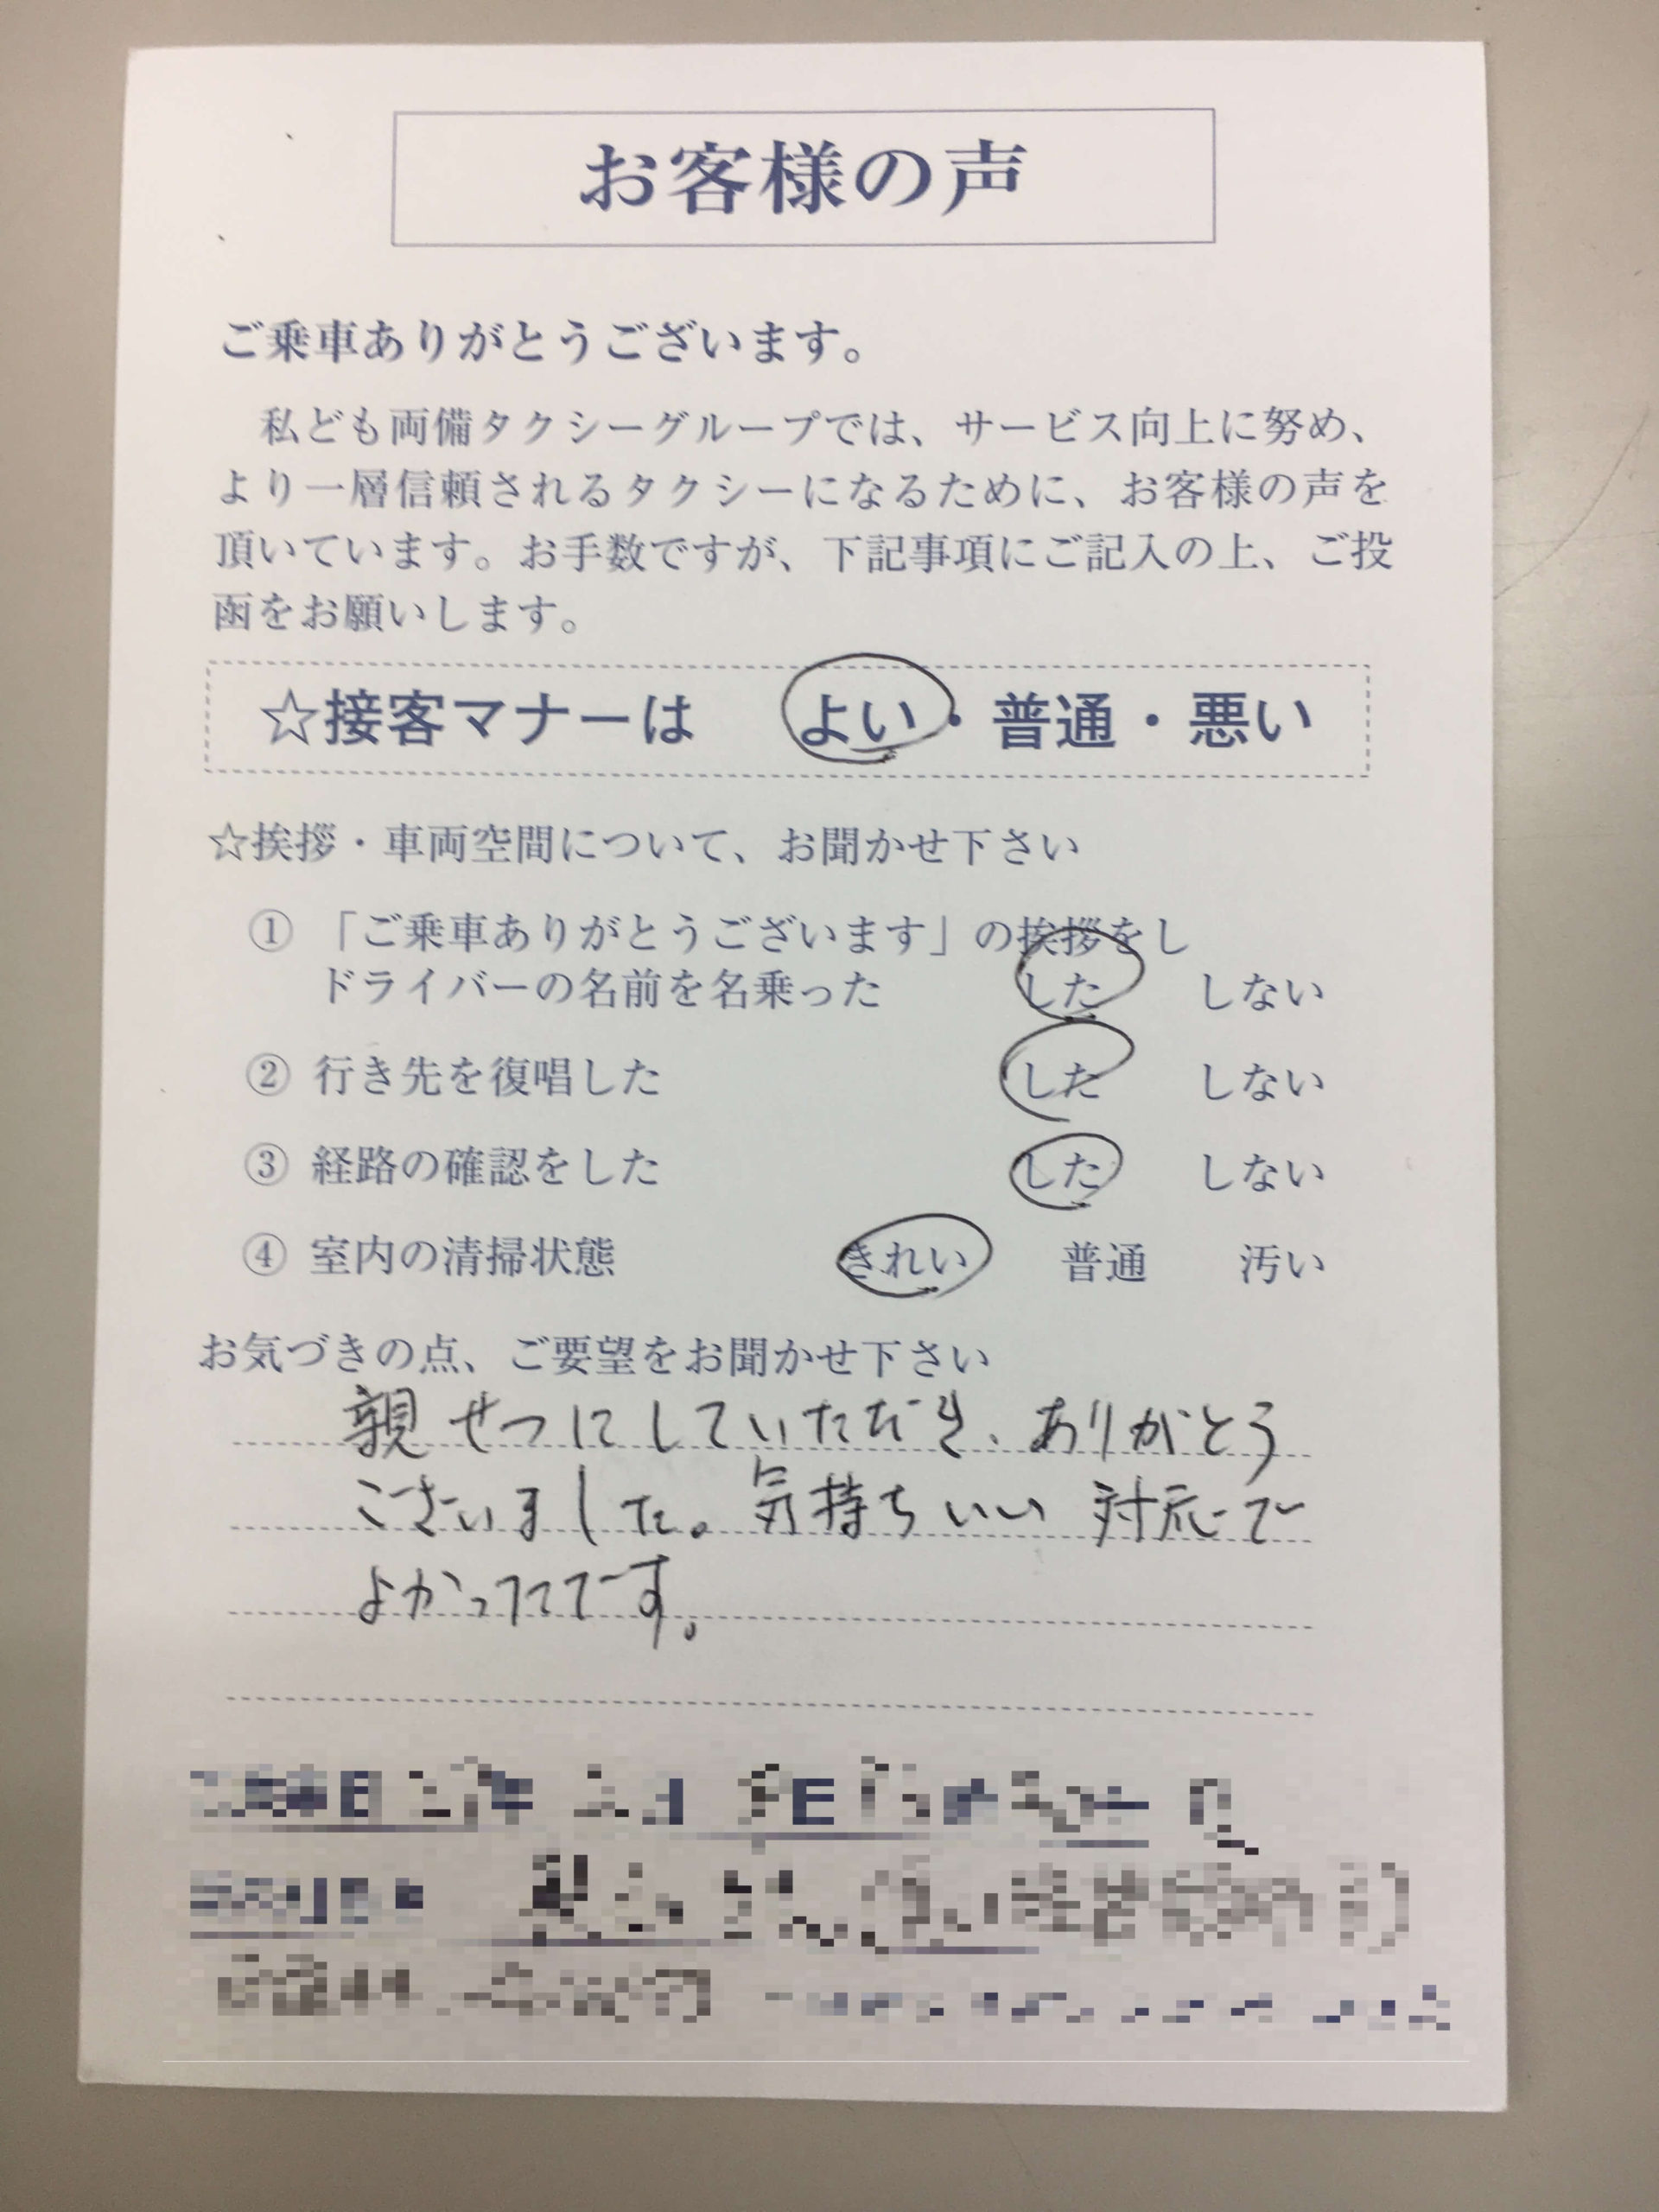 お客様の声
ご乗車ありがとうございます。
私ども両備タクシーグループでは、サービス向上に努め、
より一層信頼されるタクシーになるために、お客様の声を
頂いています。お手数ですが、下記事項にご記入の上、ご投
函をお願いします。
☆接客マナーは よい・普通・悪い
☆挨拶・車両空間について、お聞かせ下さい
① 「ご乗車ありがとうございます」の挨拶をし
ドライバーの名前を名乗った した しない
② 行き先を復唱した した しない
③ 経路の確認をした した しない
④ 室内の清掃状態 きれい 普通 汚い
お気づきの点、ご要望をお聞かせ下さい
親せつにしていただき、ありがとう
ございました。気持ちいい対応で
よかったです。